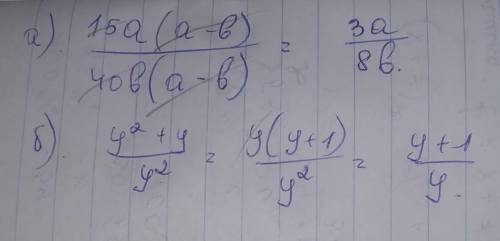 а) 15a(a-b)/40b(a-b) = 3a/8b.
б) y²+y/y² = y(y+1)/y² = y+1/y.